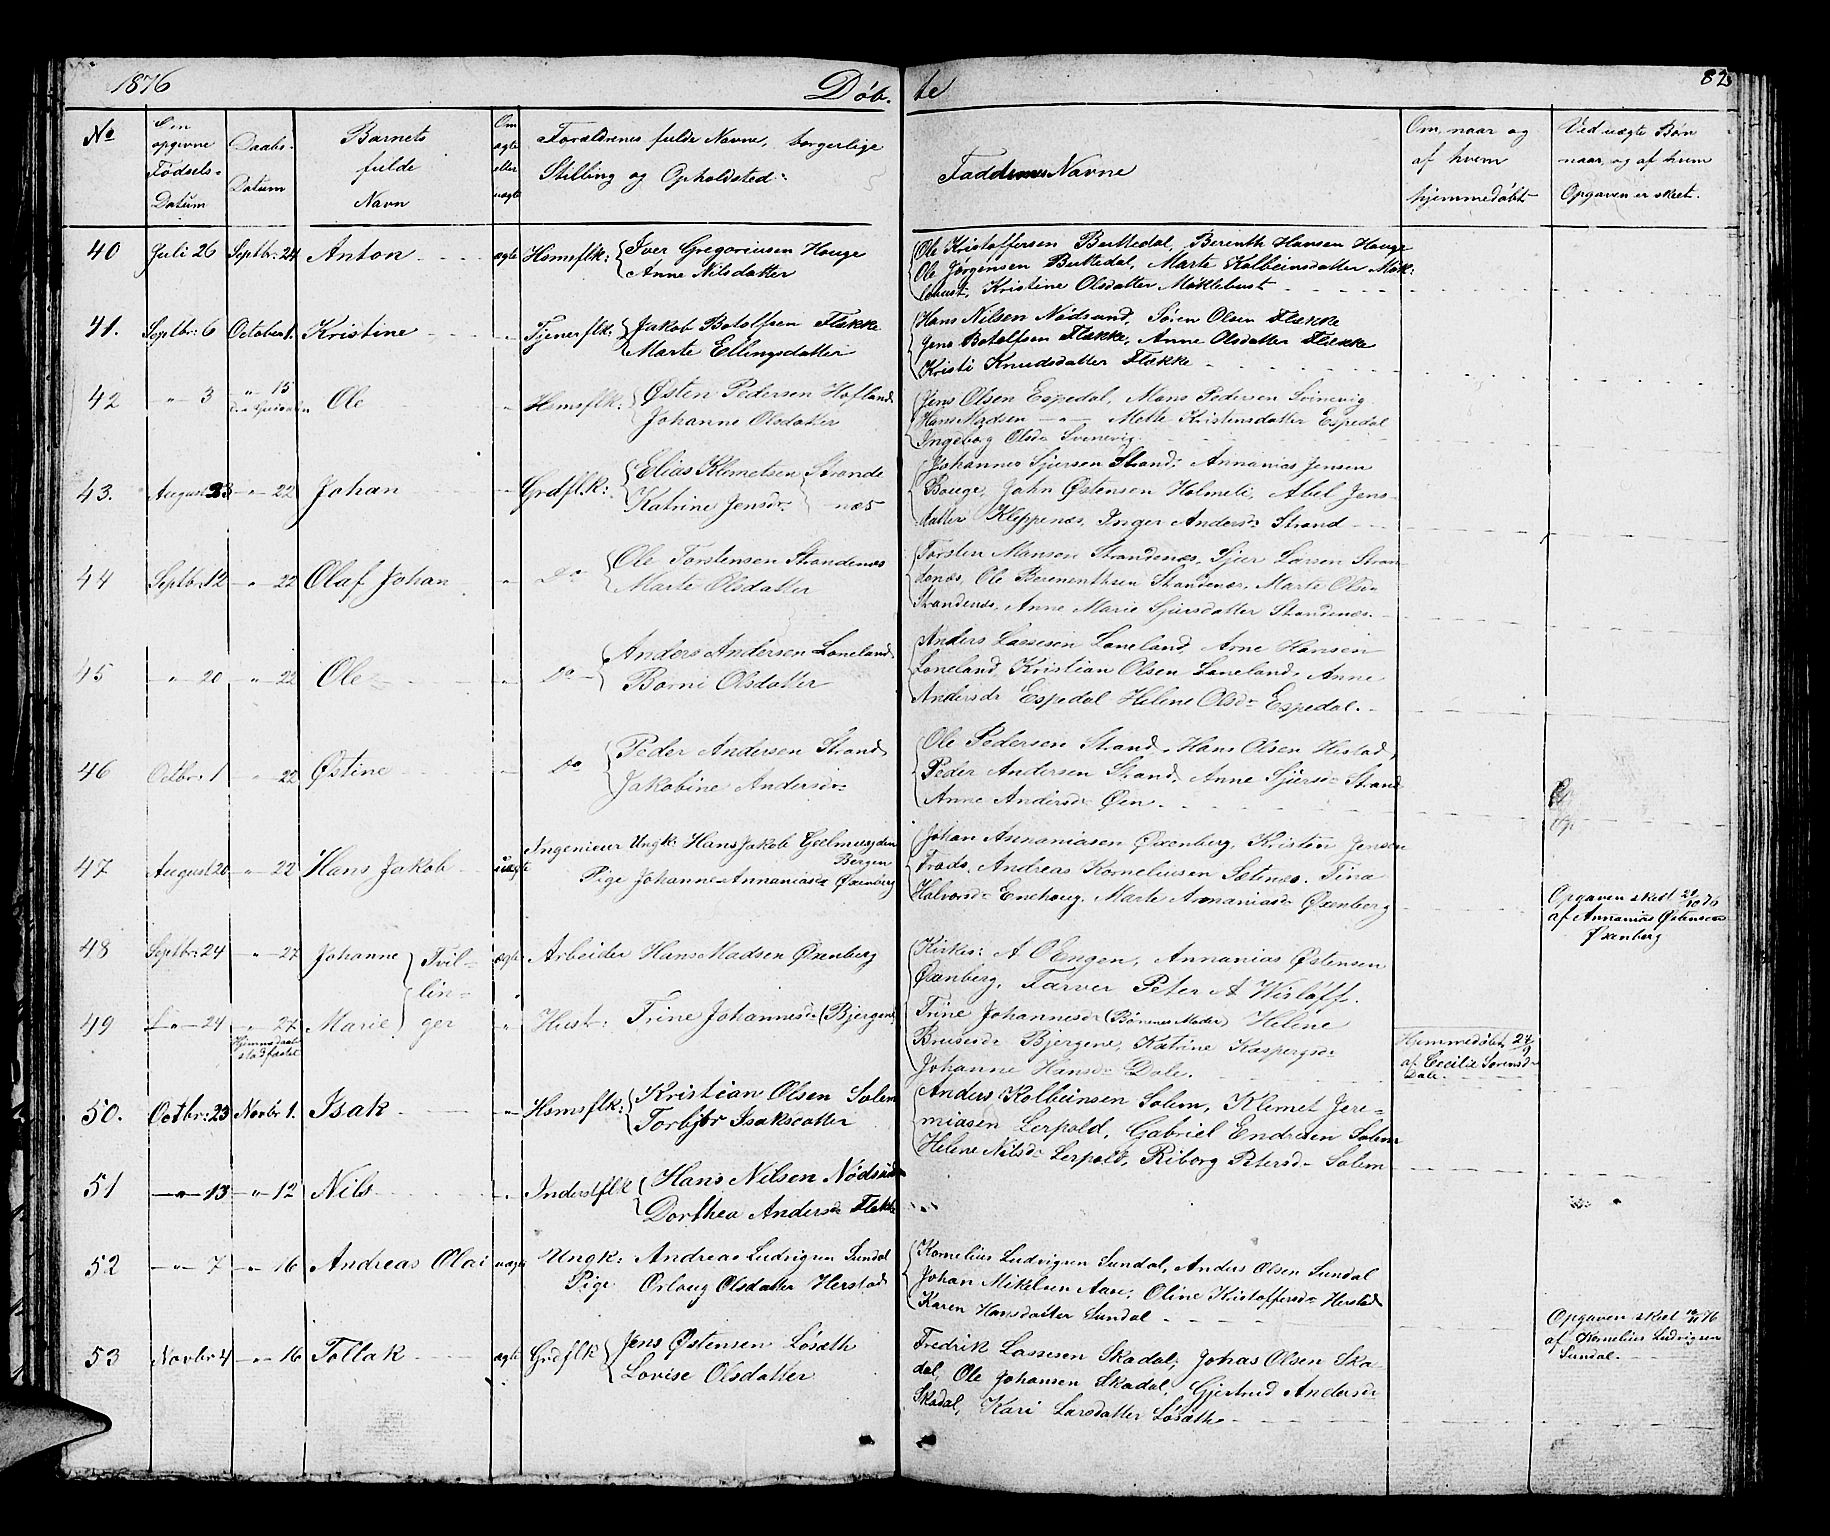 1876 Døb. te 82
No
Den opgivne Fødsels-Datum
Daabs-Datum
Barnets fulde Navn
Om ægte eller uægte
Forældrenes fulde Navne, borgerlige Stilling og Opholdsted.
Faddernes Navne
Om, naar og af hvem hjemmedøbt
Ved uægte Børn naar, og af hvem Opgaven er skeet.
40 Juli 26 Septbr: 24 Anton ægte Hsmsflk: Iver Gregoriusen Houge
Anne Nilsdatter
Ole Kristoffersen Buttedal, Berenth Hansen Houge
Ole Jørgensen Buttedal, Marte Kolbeinsdatter Møk:
lebust, Kristine Olsdatter Møklebust
41. Septbr: 6 October 1. Kristine " Tjenerflk: Jakob Botolfsen Flekke
Marte Ellingsdatter
Hans Nilsen Nødsund, Søren Olsen Flekke
Jens Botolfsen Flekke, Anne Olsdatter Flekke
Kristi Knudsdatter Flekke
42 " 3 " 15 Ole " Hsmsflk: Østen Pedersen Hofland
Johanne Olsdatter
Jens Olsen Espedal, Mons Pedersen Svinevig
Hans Madsen " Mette Kristensdatter Espedal
Ingeborg Olsdr Svenevig
43. August 23 " 22 Johan " Grdflk: Elias Klemetsen Strande
Katrine Jensdr næs
Johannes Sjursen Strand, Annanias Jensen
Bouge, John Østensen Holmeli, Abel Jens-
datter Kleppenes, Inger Andersdr Strand
44 Septbr: 12 " 22 Olaf Johan " Do Ole Torstensen Strandenæs
Marte Olsdatter
Torsten Monsen Strandenæs, Sjur Larsen Stran
denæs, Ole Berenthsen Strandenæs, Marte Olsdr
Strandenæs, Anne Marie Sjursdatter Strandenæs.
45 " 20 " 22 Ole " Do Anders Andersen Loneland
Borni Olsdatter
Anders Lassesen Loneland, Arne Hansen
Loneland, Kristian Olsen Loneland, Anne
Andersdr Espedal Helene Olsdr Espedal.
46 Octbr: 1 " 22 Østine " Do Peder Andersen Strand
Jakobine Andersdr
Ole Pedersen Strand, Hans Olsen Hestad,
Peder Andersen Strand, Anne Sjursdr Strand
Anne Andersdr Øen.
47 August 20 " 22 Hans Jakob uægte Ingenieur Ungk: Hans Jakob Geelmuyden
Bergen
Pige Johanne Annaniasdr Øxenberg
Johan Annaniasen Øxenberg, Kristen Jensen
Frods, Andreas Korneliusen Sætenes, Tina
Halvorsdr Enehoug, Marte Annaniasdr Øxenberg
Opgaven skeet 22/10 76
af Annanias Østensen
Øxenberg
48 Septbr: 24 " 27 Johanne Tvil-
lin- ægte Arbeider Hans Madsen Øxenberg
Kirkes: A O Engen, Annanias Østensen
Øxenberg, Farver Peter A Wisløff.
49 " 24 " 27 Marie ger " Hust: Trine Johannesdr (Bjergene)
Trine Johannesdr (Børnenes Moder) Helene
Brusersdr Bjergene, Katrine Kaspersdr
Johanne Hansdr Dale.
Hjemmedøbt 24/9
af Cecilie Sørensdr
Dale.
50. Octbr: 23 Novbr 1. Isak " Hsmsflk: Kristian Olsen Solem
Torbjør Isaksdatter
Anders Kolbeinsen Solem, Klemet Jere-
miasen Lerpold, Gabriel Endresen Solem
Helene Nilsdr Lerpold, Riborg Petersdr Solem
51 " 13 " 12 Nils " Inderstflk Hans Nilsen Nødsund
Dorthea Andersdr Flekke
52 " 7 " 16 Andreas Olai uægte Ungk: Andreas Ludvigsen Sundal
Pige Orloug Olsdatter Herstad
Kornelius Ludvigsen Sundal, Anders Olsen Sundal
Johan Mikelsen Aase, Oline Kristoffersdr Herstad
Karen Hansdatter Sundal
Opgaven skeet 76
af Kornelius Ludvigsen
Sundal.
53 Novbr 4 " 16 Tollak ægte Grdflk Jens Østensen Løseth
Lovise Olsdatter
Fredrik Lassesen Skadal, Johas Olsen Ska-
dal, Ole Johansen Skadal, Gjertrud Andersdr
Skadal, Kari Larsdatter Løseth